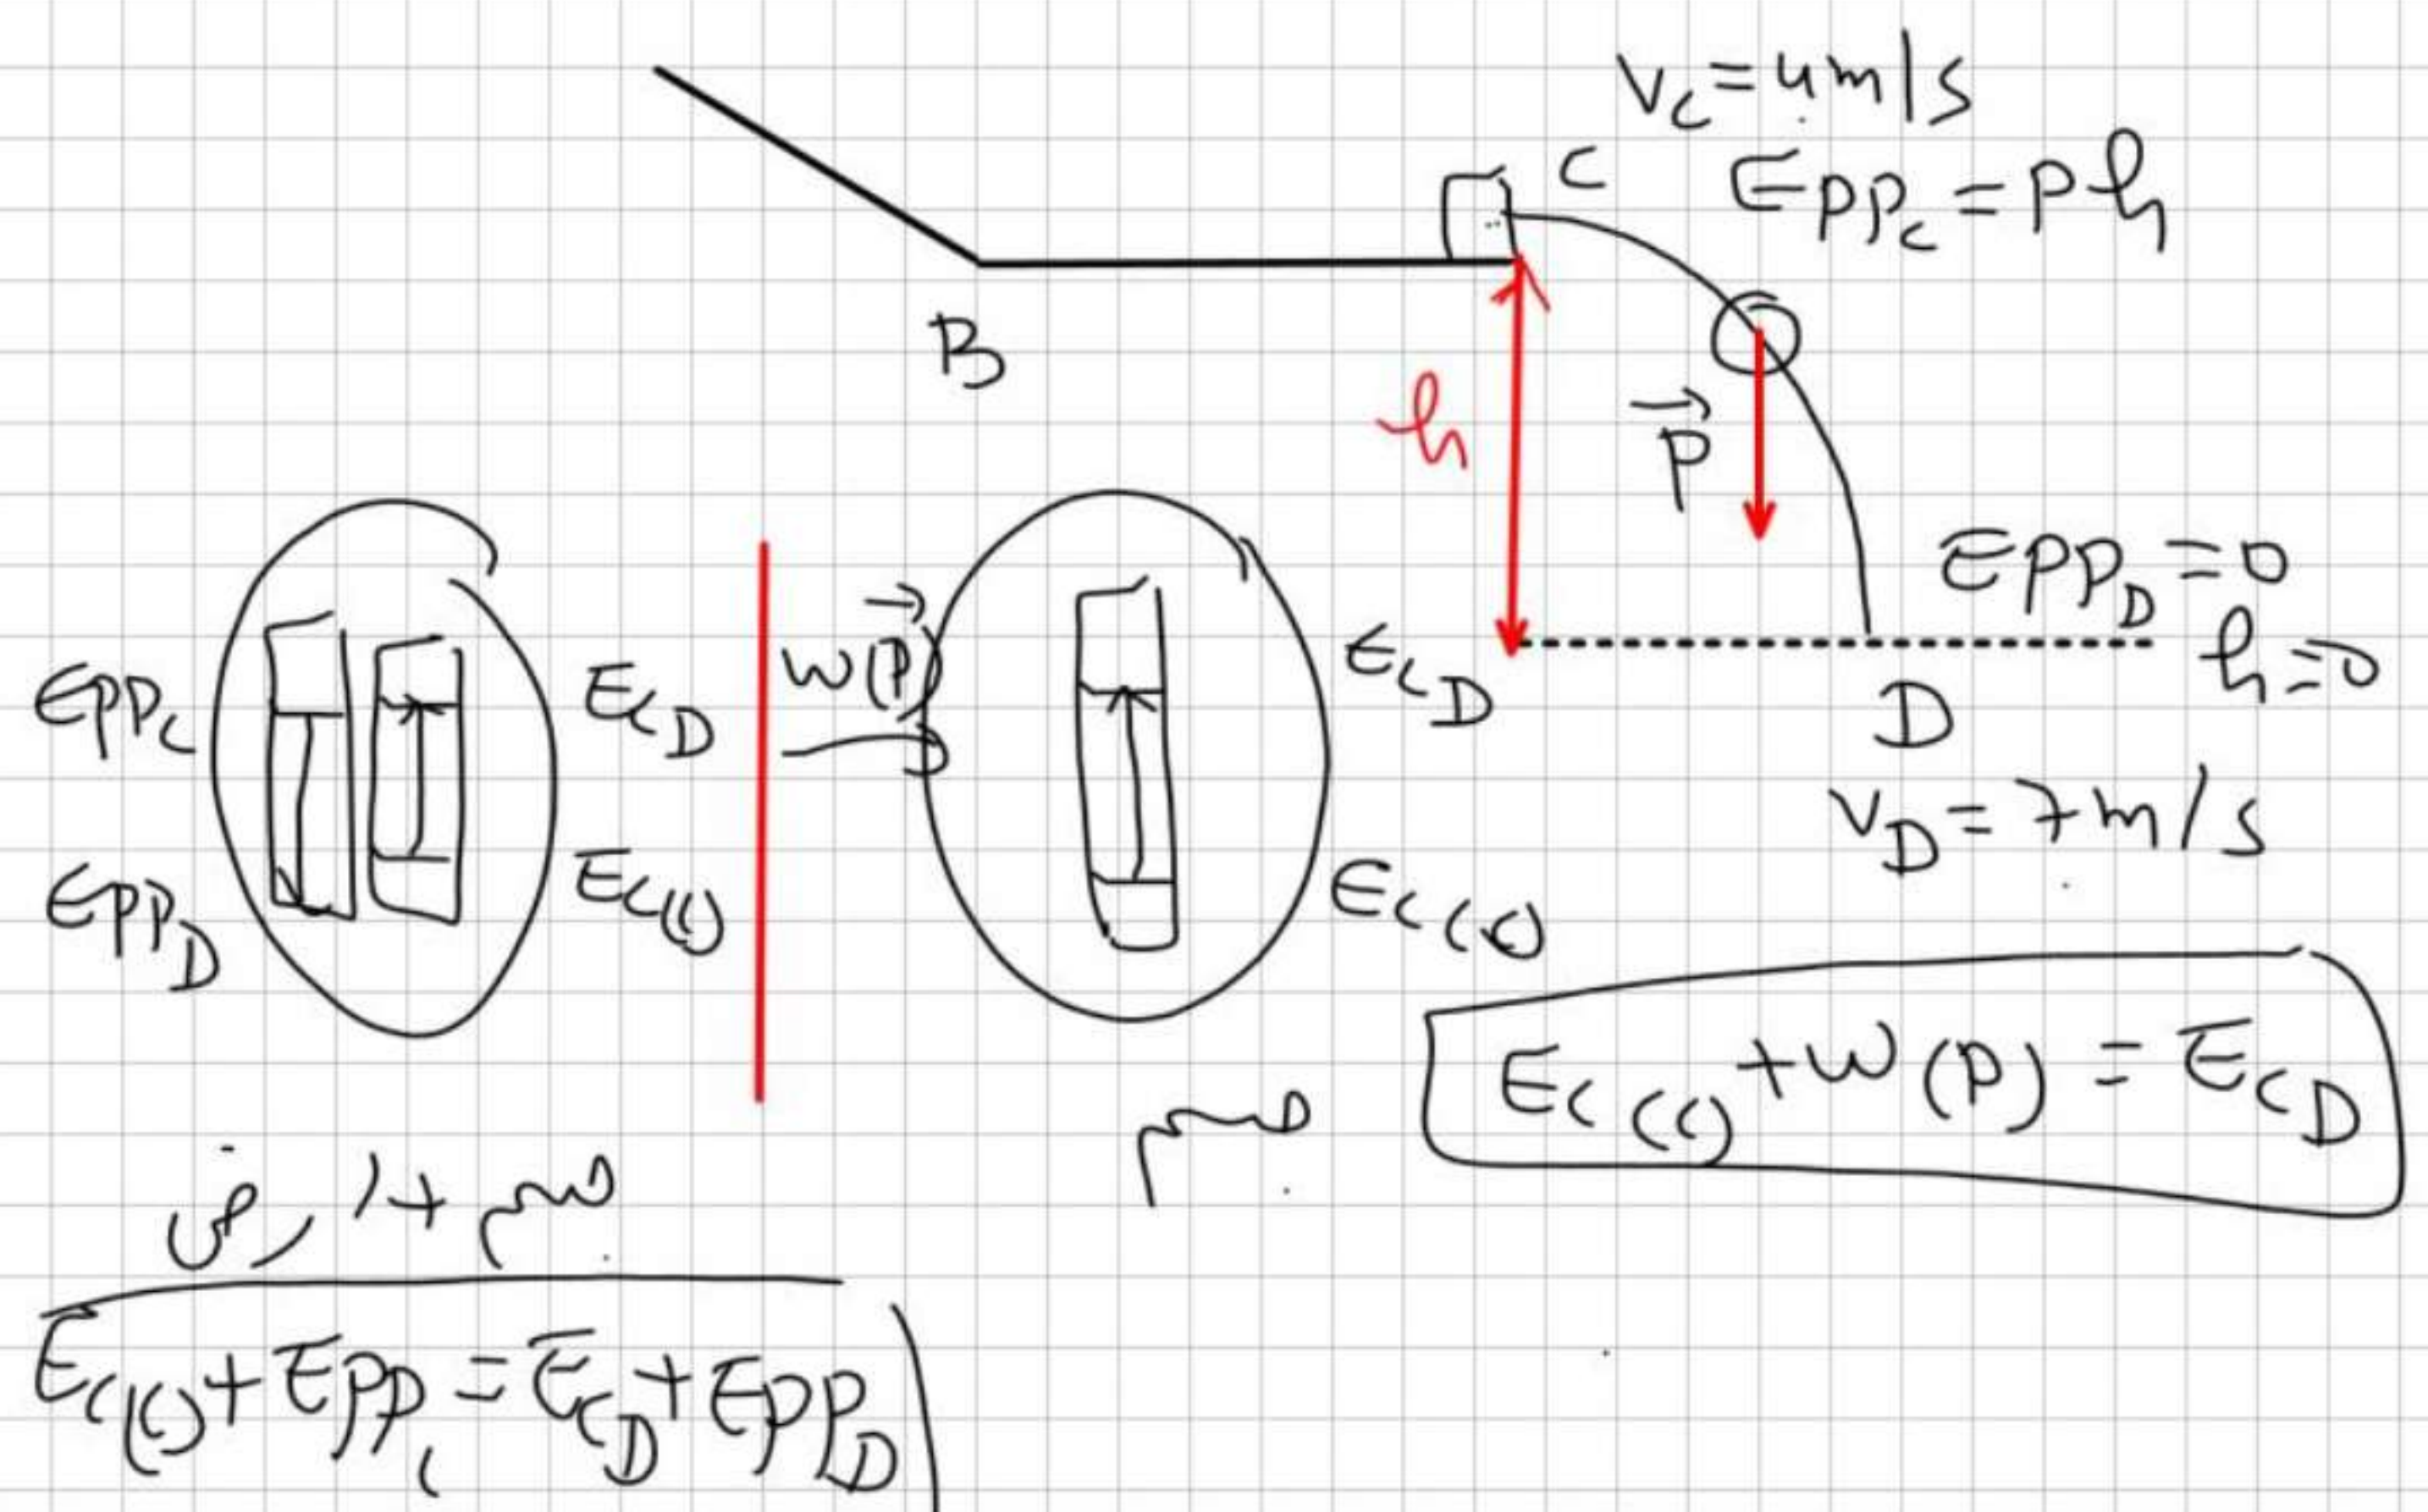 V_C = 4m/s
C
Epp_C = P h
B
h
P⃗
Epp_D = 0
h = 0
D
V_D = 7m/s
Epp_C
Ec_D
W(P⃗)
Ec_D
Epp_D
Ec(C)
Ec(C)
جسم
Ec(C) + W(P) = Ec_D
جسم + أرض
Ec(C) + Epp_C = Ec_D + Epp_D